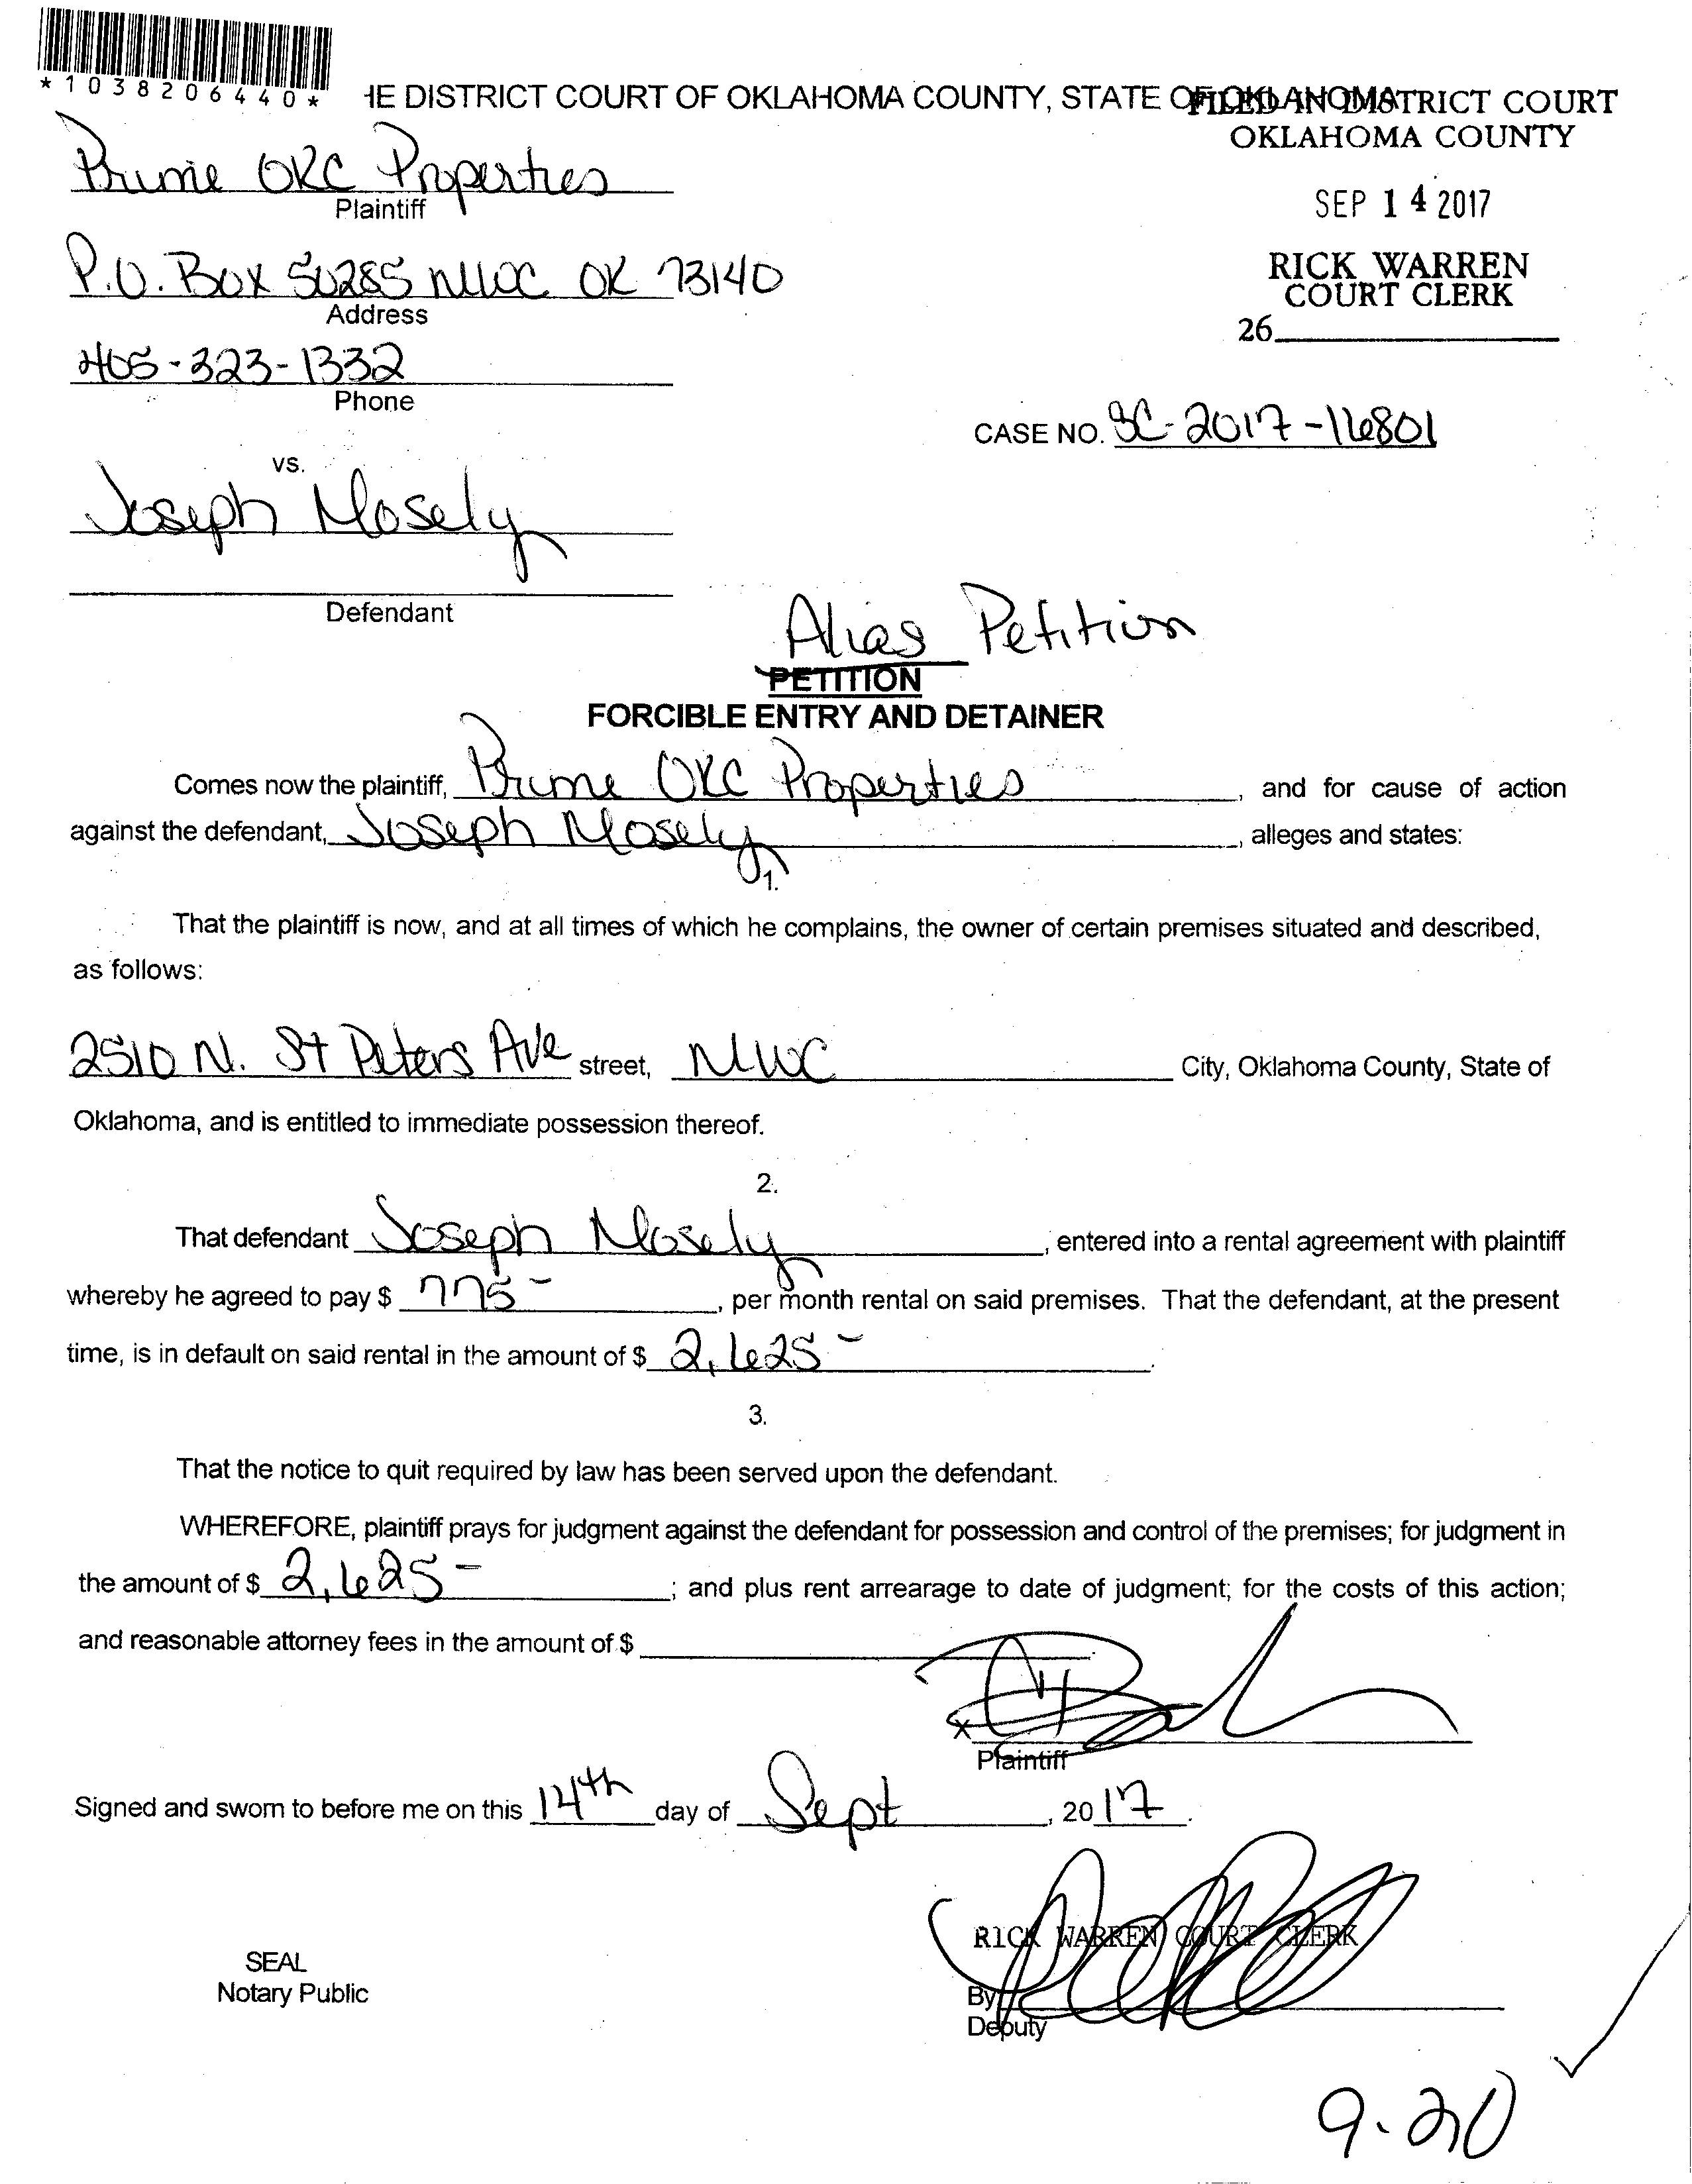 *1038206440*
HE DISTRICT COURT OF OKLAHOMA COUNTY, STATE OF OKLAHOMA
FILED IN DISTRICT COURT
OKLAHOMA COUNTY
SEP 14 2017
RICK WARREN
COURT CLERK
26
Prime OKC Properties
Plaintiff
P.O. Box 50285 MWC OK 73140
Address
405-323-1332
Phone
CASE NO. SC-2017-16801
vs.
Joseph Mosely
Defendant
Alias Petition
PETITION
FORCIBLE ENTRY AND DETAINER
Comes now the plaintiff, Prime OKC Properties, and for cause of action
against the defendant, Joseph Mosely, alleges and states:
1.
That the plaintiff is now, and at all times of which he complains, the owner of certain premises situated and described,
as follows:
2510 N. St Peters Ave street, MWC City, Oklahoma County, State of
Oklahoma, and is entitled to immediate possession thereof.
2.
That defendant Joseph Mosely, entered into a rental agreement with plaintiff
whereby he agreed to pay $ 775-, per month rental on said premises. That the defendant, at the present
time, is in default on said rental in the amount of $ 2,625-.
3.
That the notice to quit required by law has been served upon the defendant.
WHEREFORE, plaintiff prays for judgment against the defendant for possession and control of the premises; for judgment in
the amount of $ 2,625-; and plus rent arrearage to date of judgment; for the costs of this action;
and reasonable attorney fees in the amount of $
x
Plaintiff
Signed and sworn to before me on this 14th day of Sept, 2017.
RICK WARREN COURT CLERK
SEAL
Notary Public
By
Deputy
9-20